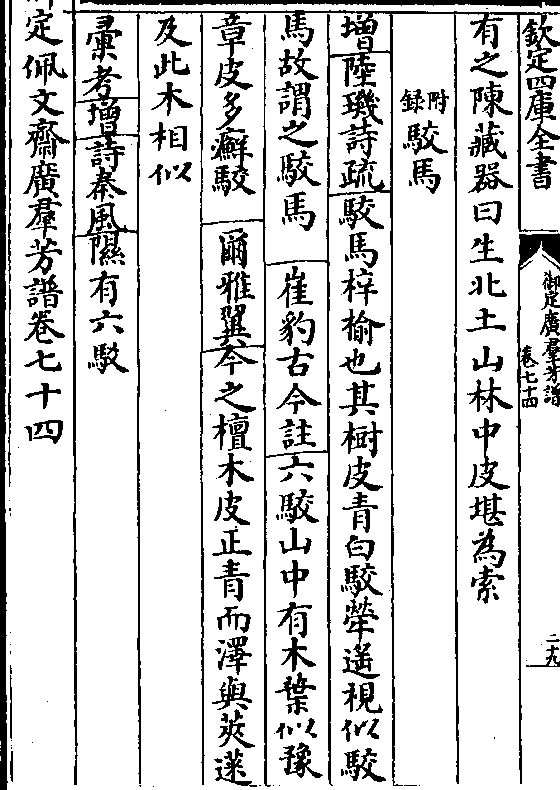 欽定四庫全書
御定廣羣芳譜
卷七十四
二十九
有之陳藏器曰生北土山林中皮堪為索
附錄駮馬
增陸璣詩疏駮馬梓榆也其樹皮青白駮犖遙視似駮
馬故謂之駮馬 崔豹古今註六駮山中有木葉似豫
章皮多癬駮 爾雅翼今之檀木皮正青而澤與莢蒾
及此木相似
彚考增詩秦風隰有六駮
定佩文齋廣羣芳譜卷七十四